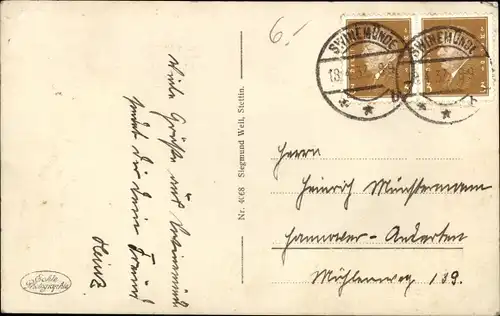 6.-
SWINEMÜNDE
SWINEMÜNDE
Viele Grüße aus Swinemünde
sendet Dir Dein Freund
Heinz
Nr. 4068 Siegmund Weil, Stettin.
Herrn
Heinrich Münstermann
Hannover-Anderten
Mühlenweg 139.
Echte
Photographie